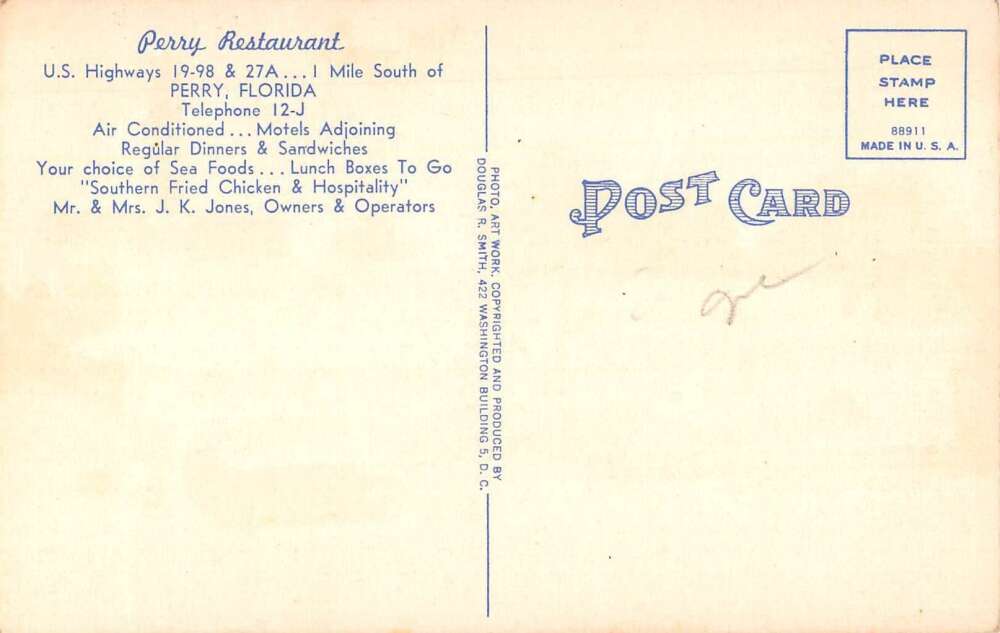 Perry Restaurant
U.S. Highways 19-98 & 27A...1 Mile South of
PERRY, FLORIDA
Telephone 12-J
Air Conditioned... Motels Adjoining
Regular Dinners & Sandwiches
Your choice of Sea Foods... Lunch Boxes To Go
"Southern Fried Chicken & Hospitality"
Mr. & Mrs. J. K. Jones, Owners & Operators
PHOTO, ART WORK, COPYRIGHTED AND PRODUCED BY
DOUGLAS R. SMITH, 422 WASHINGTON BUILDING 5, D. C.
PLACE
STAMP
HERE
88911
MADE IN U. S. A.
POST CARD